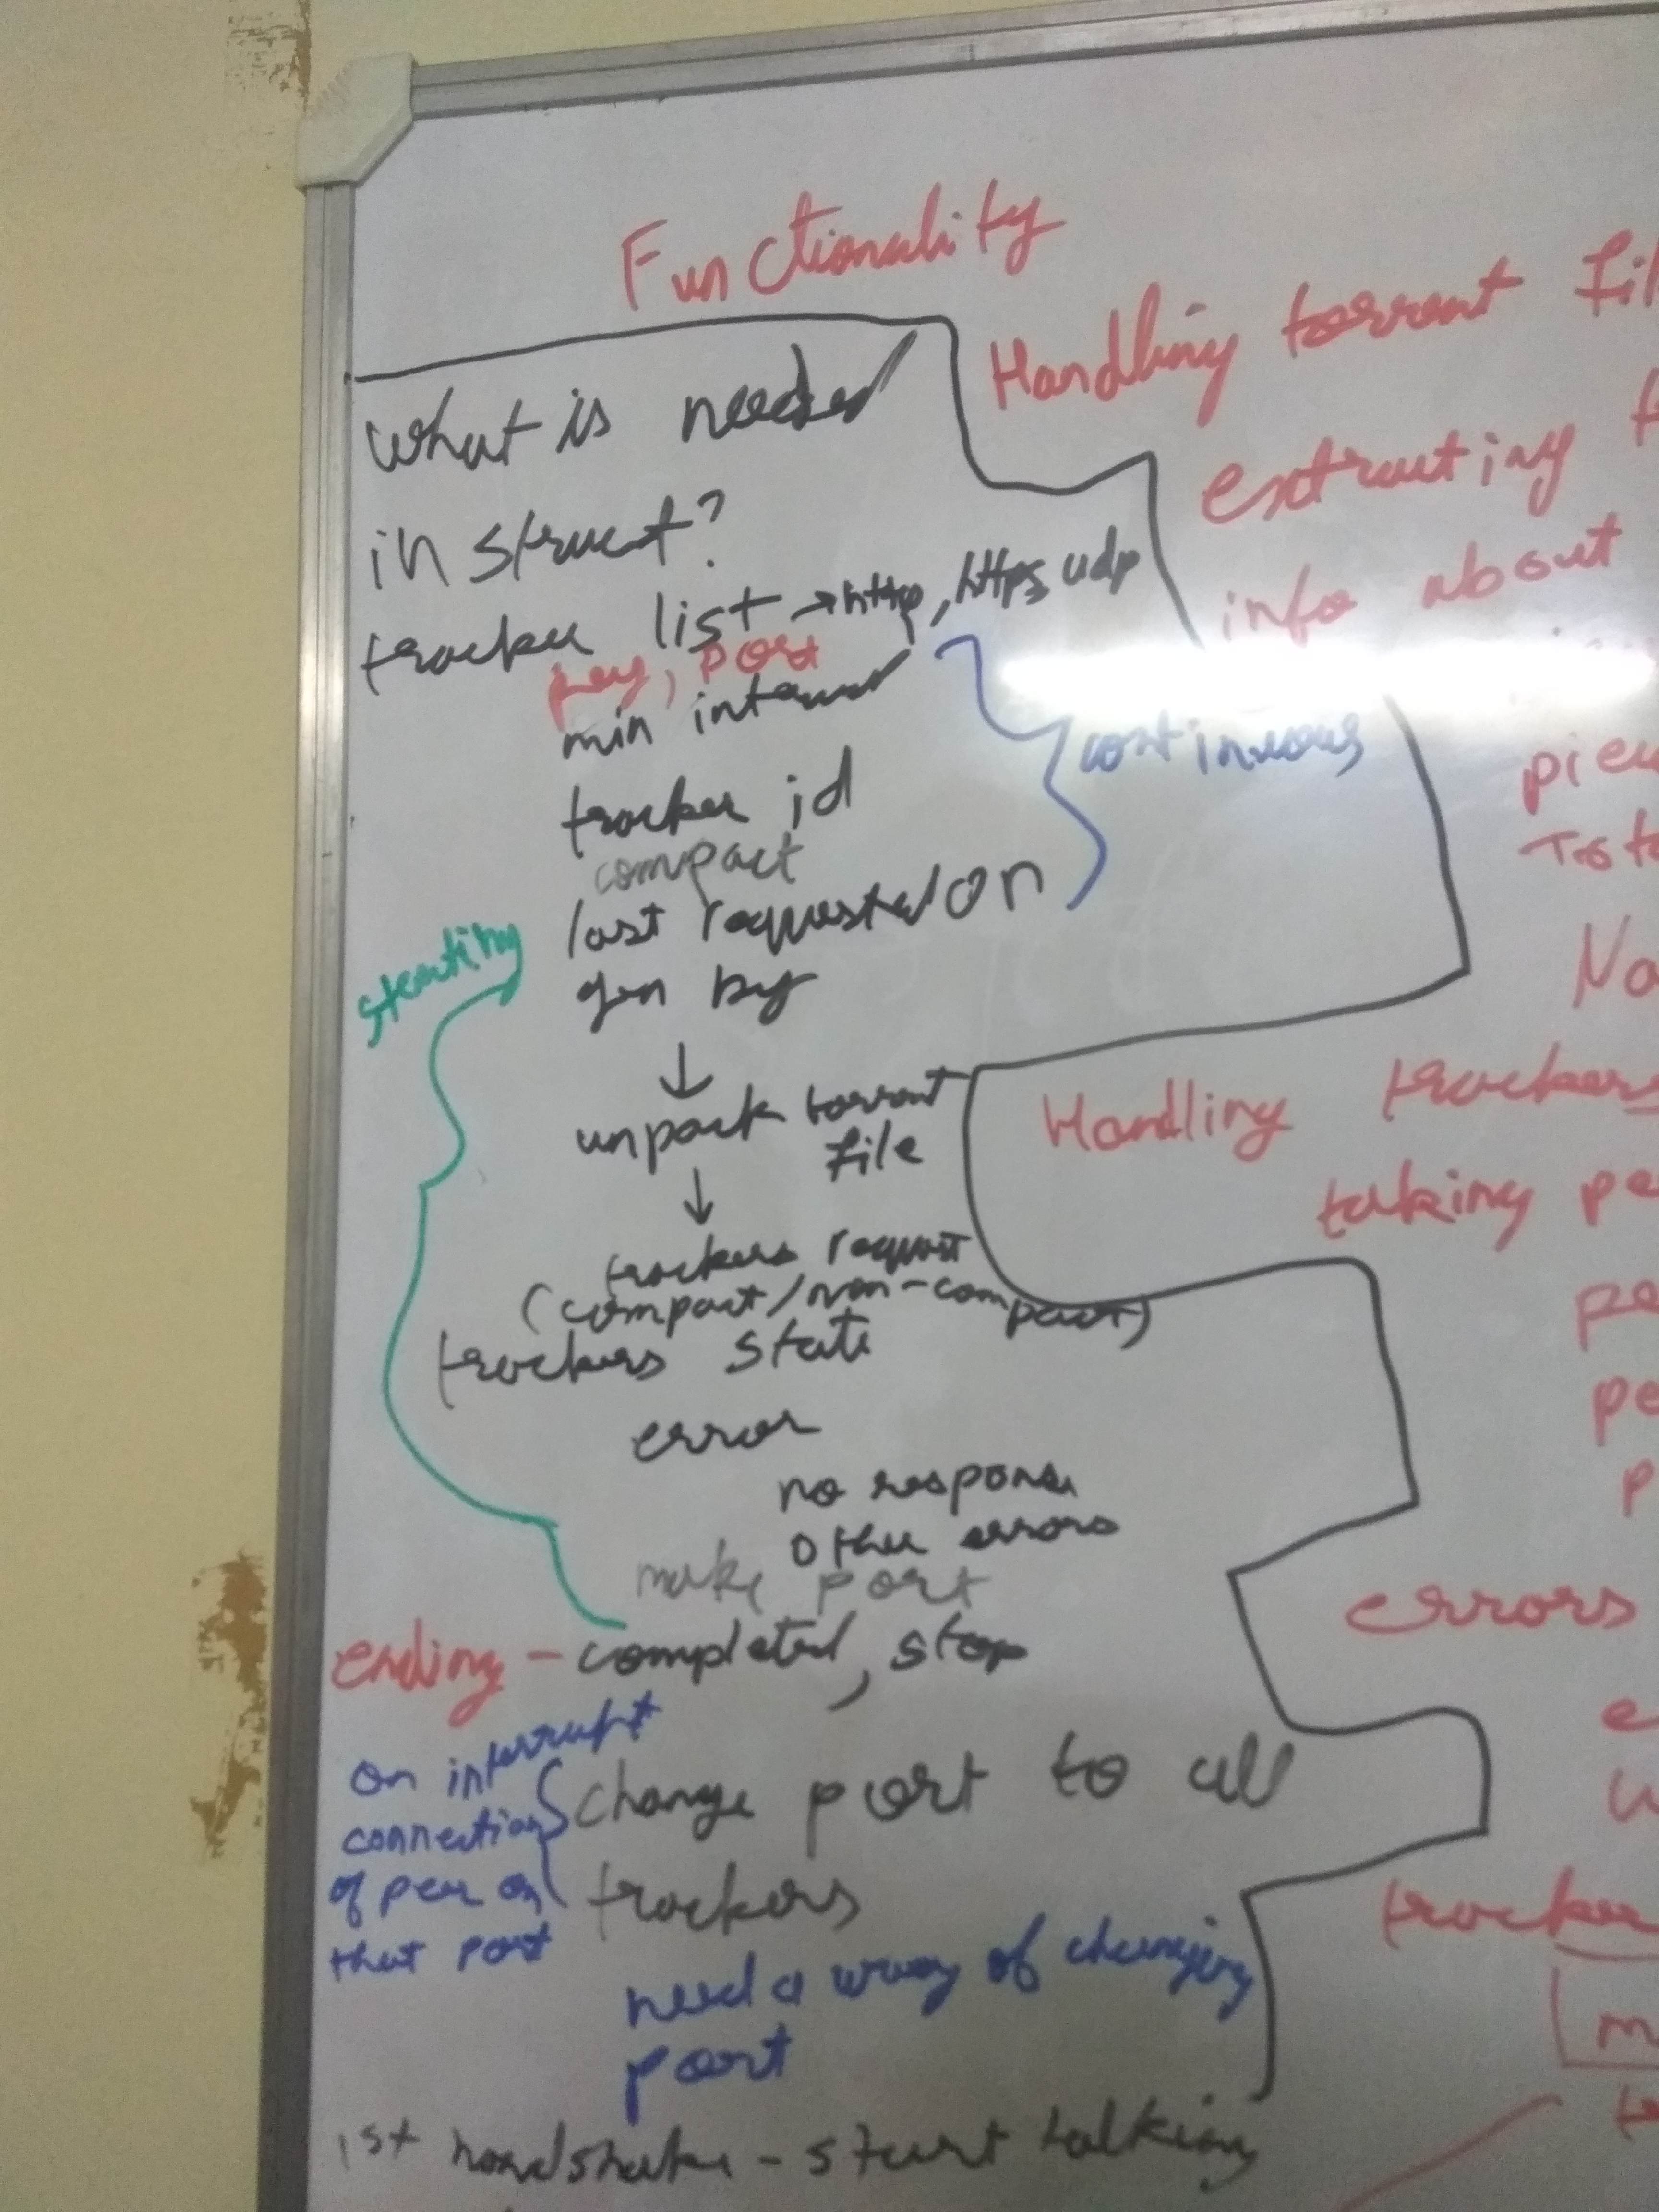 Functionality
what is needed
in struct?
tracker list → http, https, udp
key, port
min interval
continuous
tracker id
compact
last requested on
starting
gen by
↓
unpack torrent
file
↓
trackers request
(compact/non-compact)
trackers state
error
no response
other errors
make port
ending - completed, stop
on interrupt
connection
of peer on
that port
change port to all
trackers
need a way of changing
port
1st handshake - start talking
Handling torrent
extracting
info about
Handling trackers
taking
errors
tracker